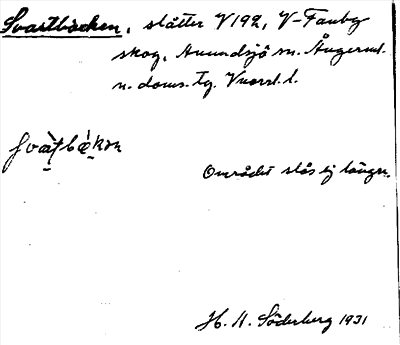 Svartbäcken, slåtter V192, V-Fanby
skog, Anundsjö sn. Ångerml.
n. doms. tg. Vnorrl. l.
Området slås ej längre.
H. H. Söderberg 1931